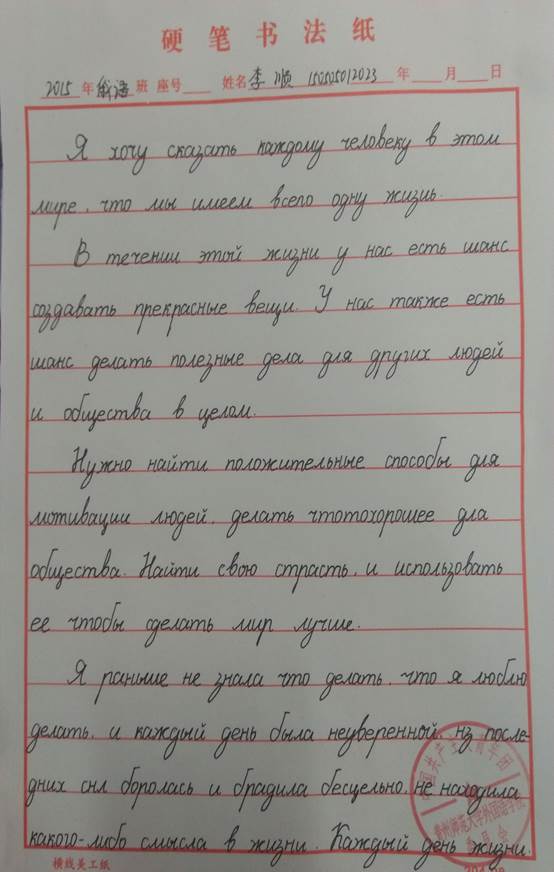 硬笔书法纸
2015年俄语班 座号 姓名李顺 150505012023 年 月 日
Я хочу сказать каждому человеку в этом
мире, что мы имеем всего одну жизнь.
В течении этой жизни у нас есть шанс
создавать прекрасные вещи. У нас также есть
шанс делать полезные дела для других людей
и общества в целом.
Нужно найти положительные способы для
мотивации людей, делать чтотохорошее для
общества. Найти свою страсть, и использовать
ее чтобы сделать мир лучше.
Я раньше не знала что делать, что я люблю
делать, и каждый день была неуверенной, из после-
дних сил боролась и брадила бесцельно, не находила
какого-либо смысла в жизни. Каждый день жизни.
横线美工纸